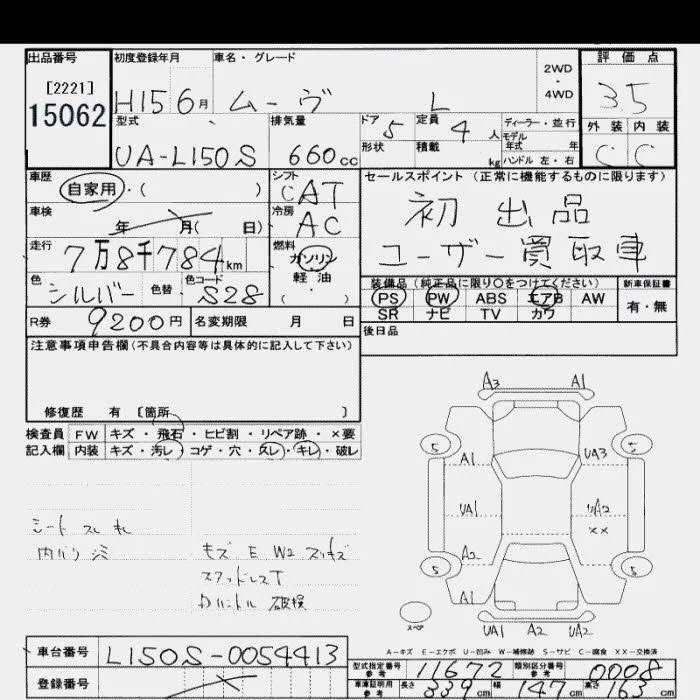 出品番号 初度登録年月 車名・グレード 2WD ・ 4WD 評価点
[2221]
15062
H15 6月 ムーヴ L 3.5
型式 排気量 ドア 5 定員 4人 ディーラー・並行 外装 内装
形状 積載 kg モデル年式 年式 ハンドル 左・右
UA-L150S 660cc C C
車歴 自家用・( ) シフト CAT セールスポイント(正常に機能するものに限ります)
車検 年 月( 日) 冷房 AC 初出品
走行 7万8千784km 燃料 ガソリン 軽油 ( ・ ) ユーザー買取車
色 シルバー 色替 色コード S28 装備品(純正品に限り〇をつけてください) 新車保証書
PS PW ABS エアB AW 有・無
R券 9200円 名変期限 月 日 SR ナビ TV カワ
後日品
注意事項申告欄(不具合内容等は具体的に記入して下さい)
修復歴 有 [箇所 ]
検査員 FW キズ・飛石・ヒビ割・リペア跡・×要
記入欄 内装 キズ・汚レ・コゲ・穴・スレ・キレ・破レ
A3 A1
5 5
A1 UA3
UA1 UA2
××
A2
5 5
A1
スペア UA1 A2 UA2
シート スレ キレ
内バリ シミ キズ E W2 スリキズ
スタッドレスT
破損
A-キズ E-エクボ U-凹み W-補修跡 S-サビ C-腐食 XX-交換済
車台番号 L150S-0054413
型式指定番号 参考 11672 類別区分番号 参考 0008
登録番号
車庫証明用 参考 長さ 339cm 幅 147cm 高さ cm